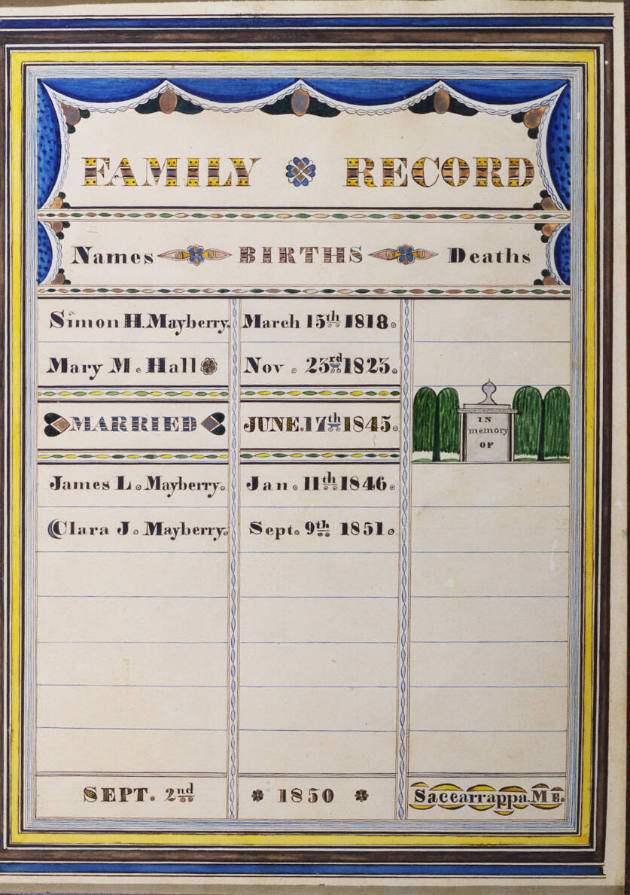 FAMILY RECORD
Names BIRTHS Deaths
Simon H. Mayberry. March 15th 1818.
Mary M. Hall Nov. 23rd 1823.
MARRIED JUNE. 17th 1845.
IN
memory
OF
James L. Mayberry. Jan. 11th 1846.
Clara J. Mayberry. Sept. 9th 1851.
SEPT. 2nd 1850 Saccarrappa. Me.